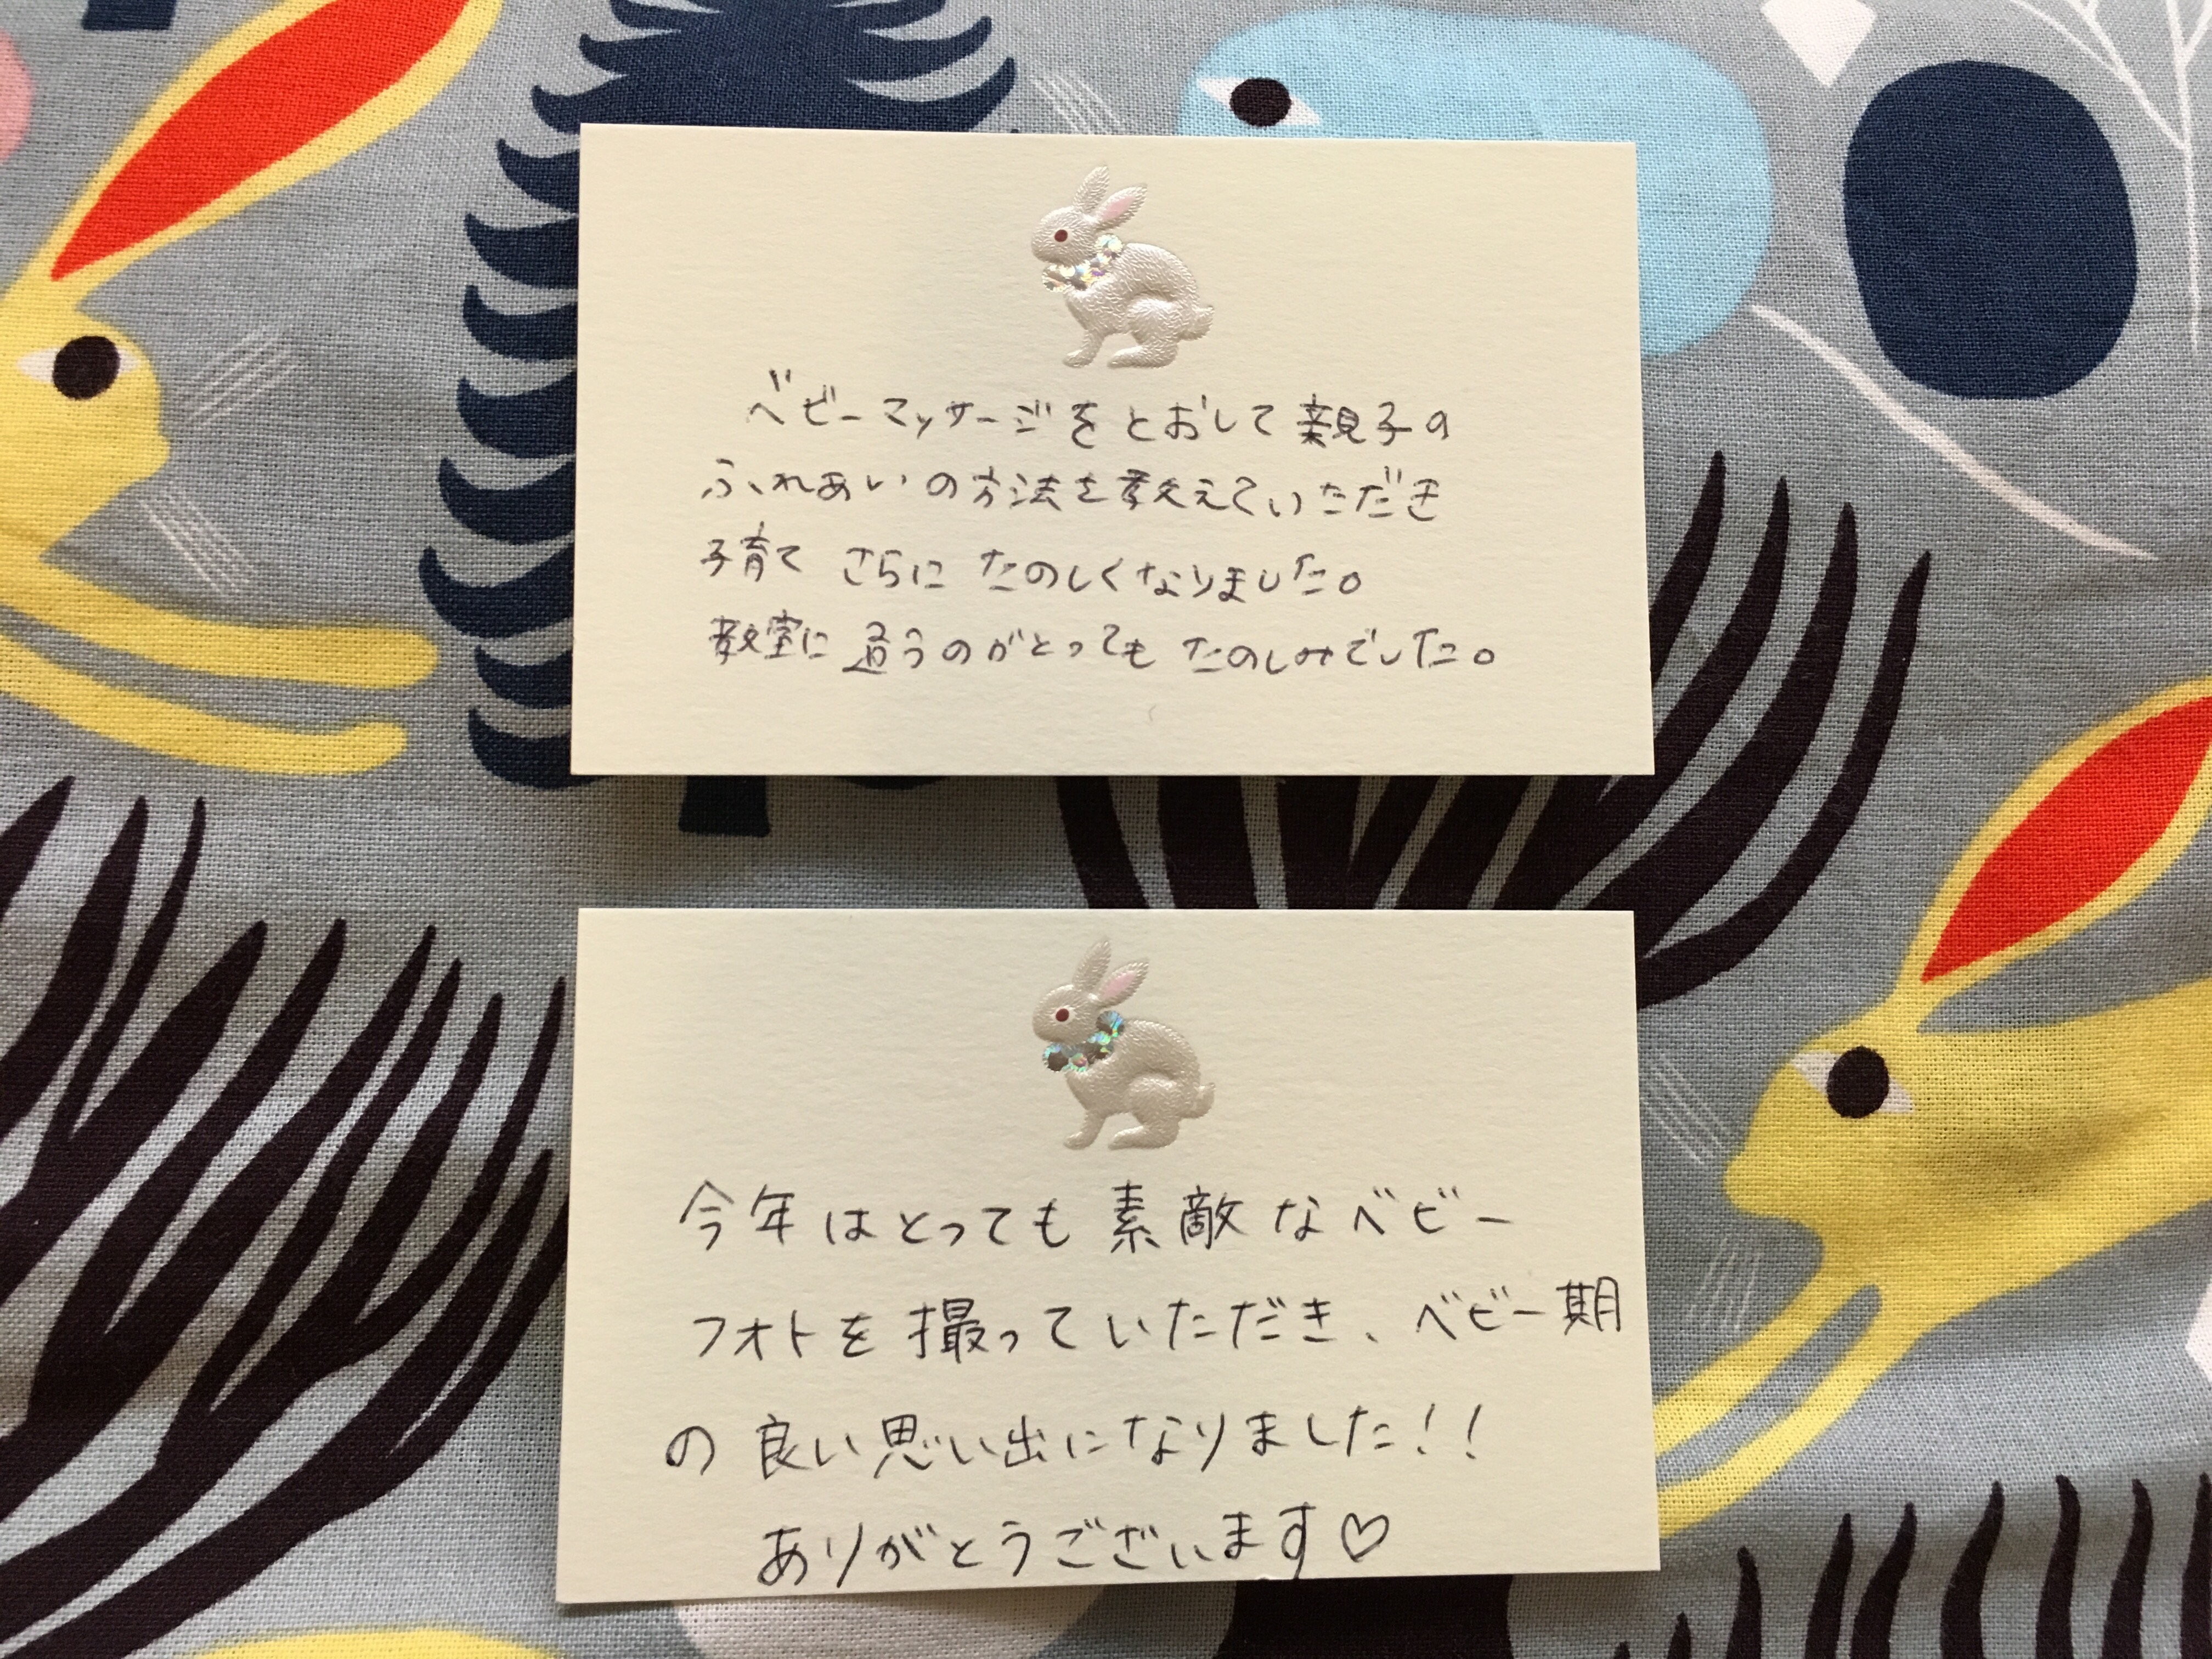 ベビーマッサージをとおして親子の
ふれあいの方法を教えていただき
子育て さらに たのしくなりました。
教室に 通うのがとっても たのしみでした。
今年はとっても素敵なベビー
フォトを撮っていただき、ベビー期
の良い思い出になりました!!
ありがとうございます♡